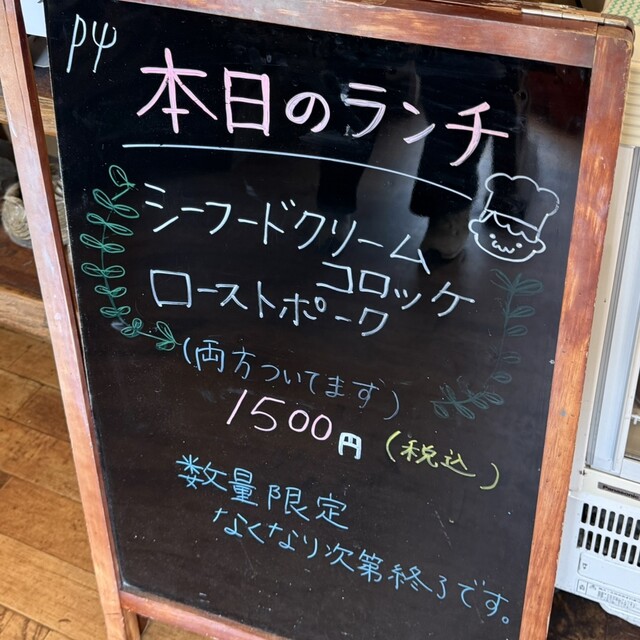 P4
本日のランチ
シーフードクリーム
コロッケ
ローストポーク
(両方ついてます)
1500円 (税込)
数量限定
なくなり次第終了です。